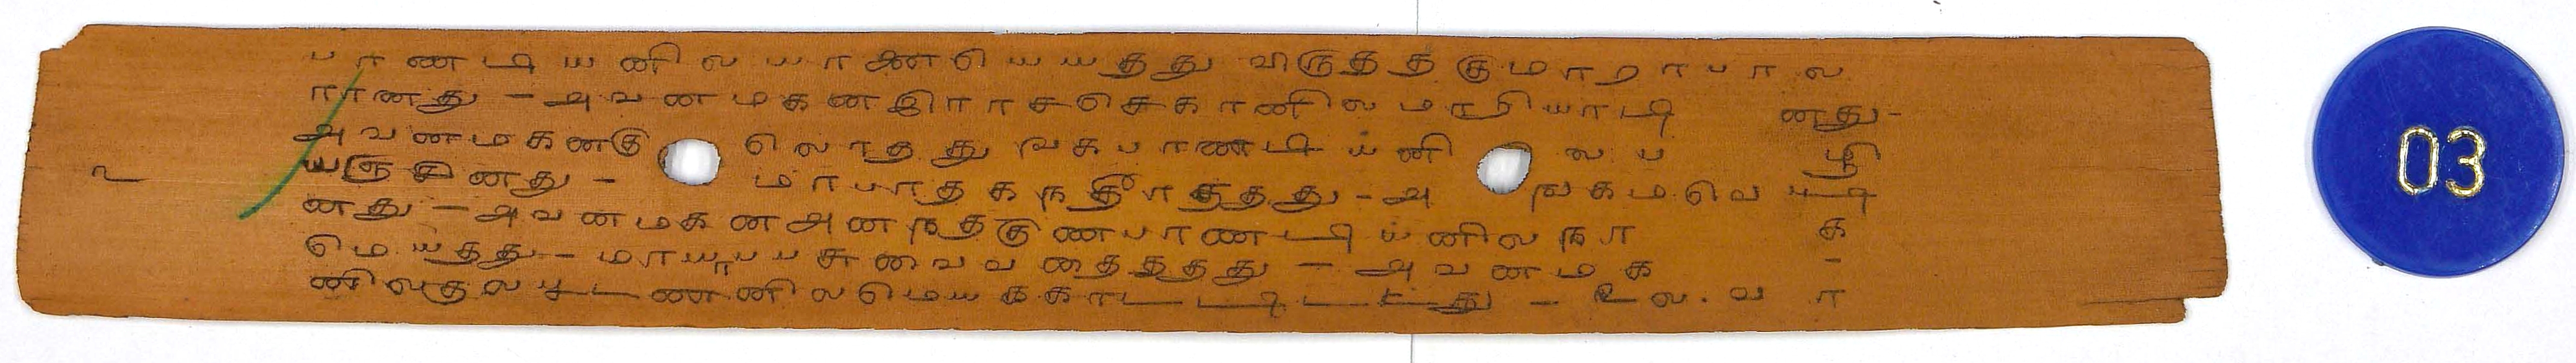 பாணடியனில யானைஎயயதது விருதத குமாராபால
ரானது - அவனமகனஇராசசெகானில மாரியாடி னது-
அவனமகனகு லொதது ஙகபாணடியனி ல ப ழி
யஞ சினது - மாபாதகநதீாதத்து - அ ஙகமவெ டடி
னது - அவனமகனஅனநதகுணபாணடியனில நா க
மெயதது - மாயாபபசுவைவ தைதத்து - அவனமக -
னிலகுலபூடணனனிலமெயககாடடிடடது - உல. வ ா
௨
03